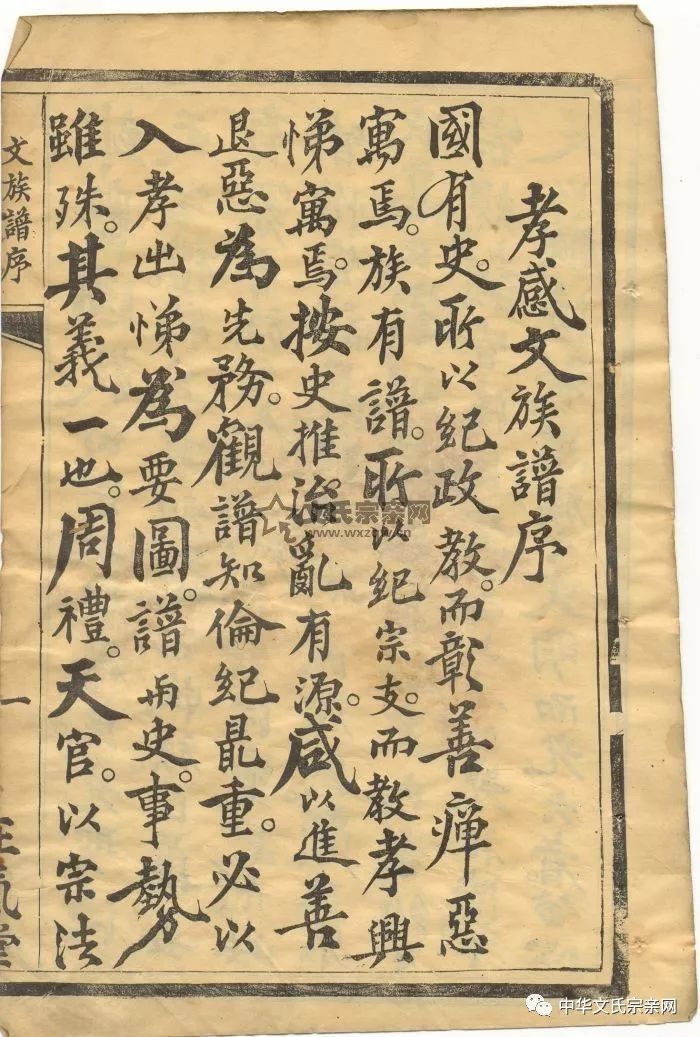 孝感文族譜序
國有史。所以紀政教。而彰善癉惡
寓焉。族有譜。所以紀宗支。而教孝興
悌寓焉。按史推治亂有源。咸以進善
退惡為先務。觀譜知倫紀最重。必以
入孝出悌為要圖。譜與史。事勢
雖殊。其義一也。周禮。天官。以宗法
文族譜序
一
正氣堂
文氏宗亲网
www.wxzqw.cn
中华文氏宗亲网